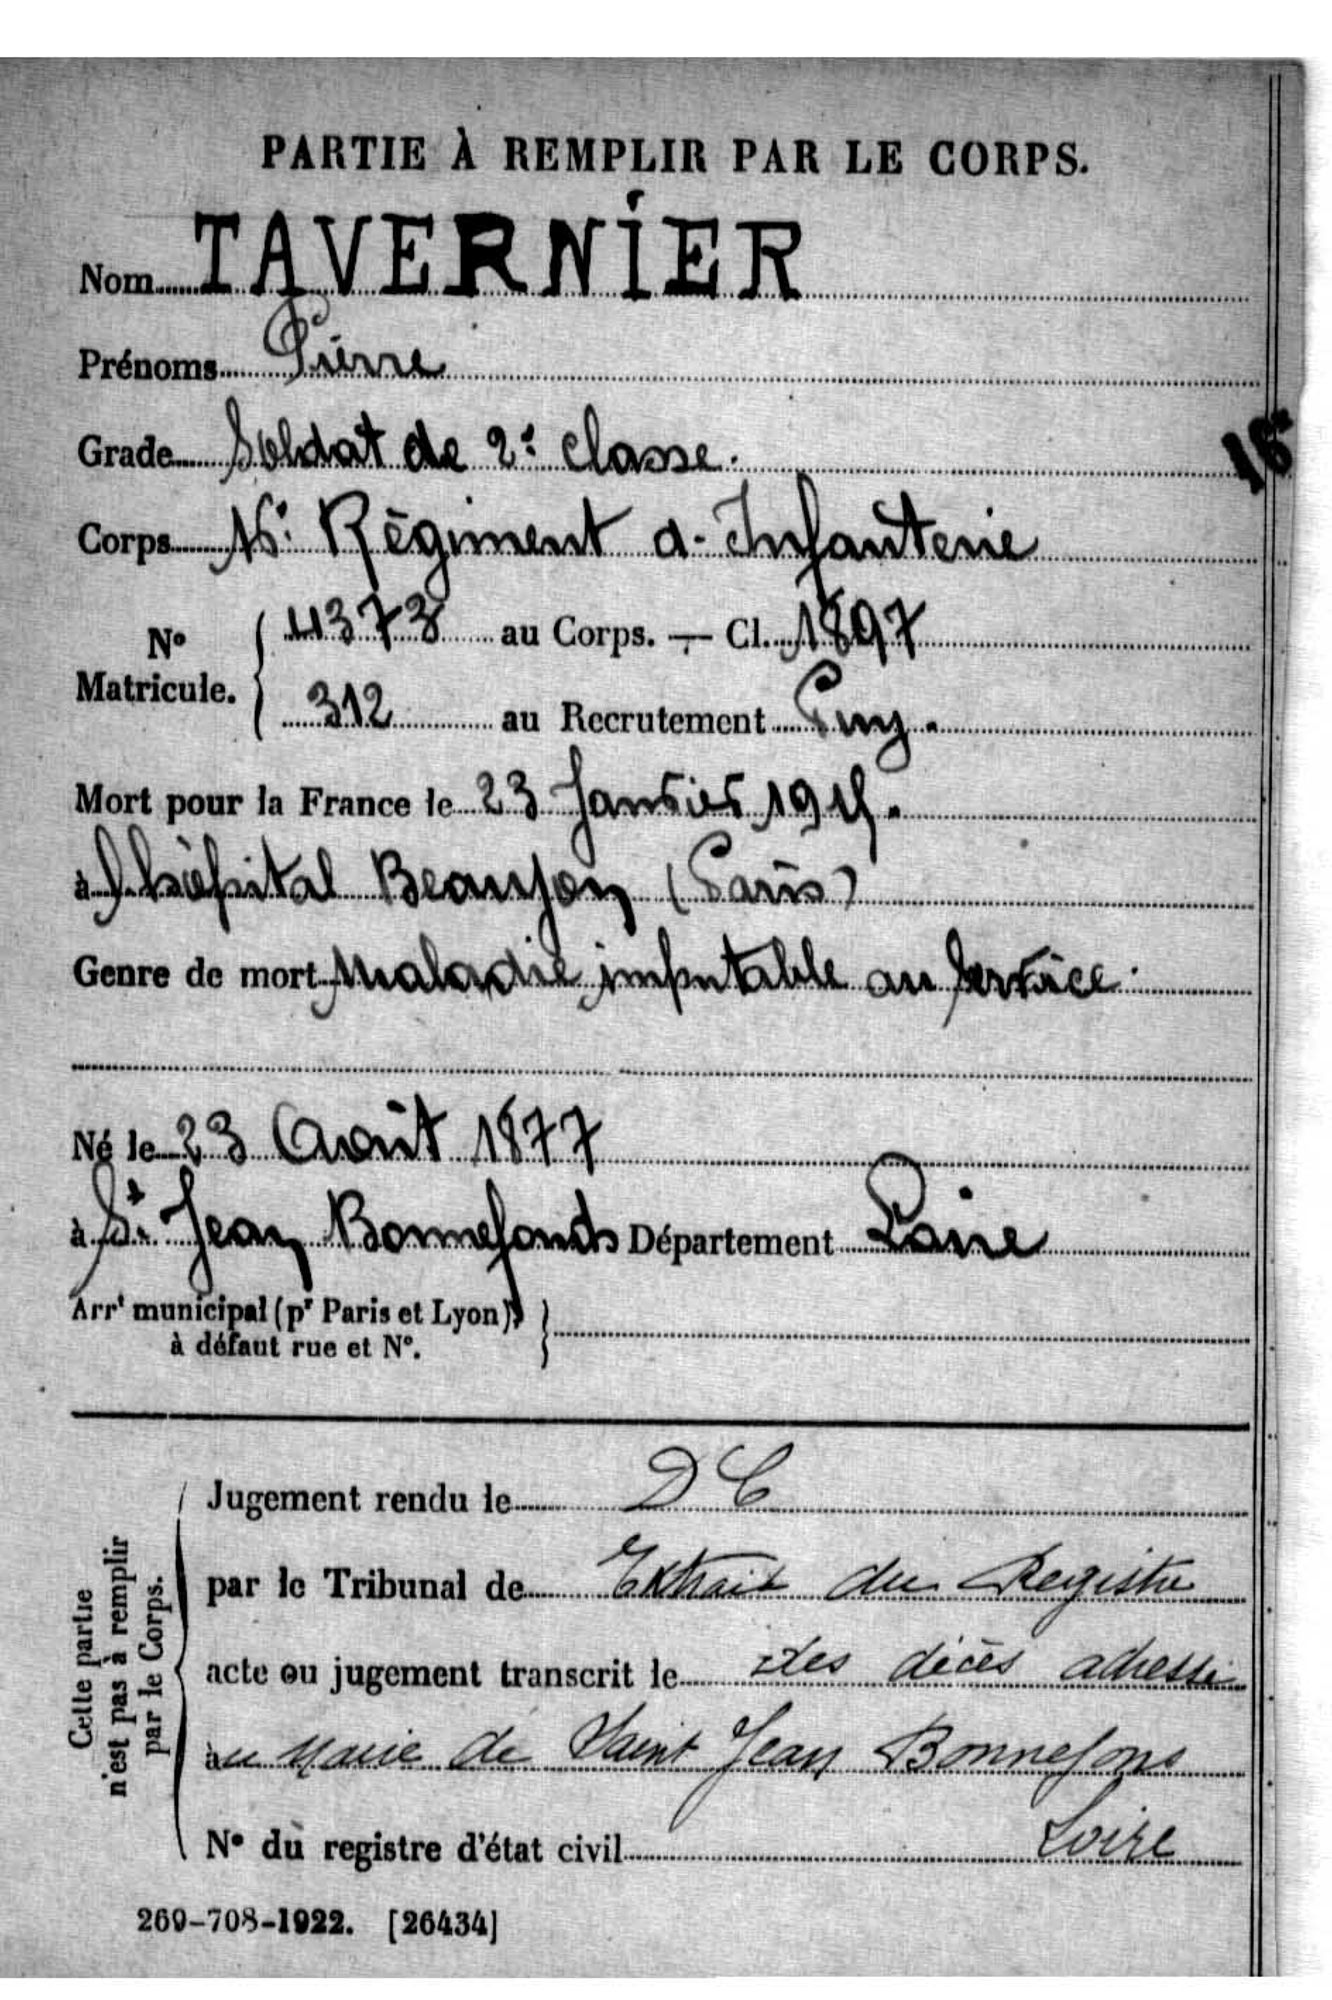 PARTIE À REMPLIR PAR LE CORPS.
Nom TAVERNIER
Prénoms Pierre
Grade Soldat de 2e classe.
16e
Corps 16e Régiment d'Infanterie
N° Matricule. 4373 au Corps. — Cl. 1897
312 au Recrutement Puy.
Mort pour la France le 23 Janvier 1915.
à l'hôpital Beaujon (Paris)
Genre de mort Maladie imputable au service.
Né le 23 Août 1877
à St Jean Bonnefonds Département Loire
Arrt municipal (pr Paris et Lyon),
à défaut rue et N°.
Cette partie n'est pas à remplir par le Corps.
Jugement rendu le D C
par le Tribunal de Extrait du Registre
acte ou jugement transcrit le des décès adressé
au Maire de Saint Jean Bonnefons
N° du registre d'état civil Loire
269-708-1922. [26434]